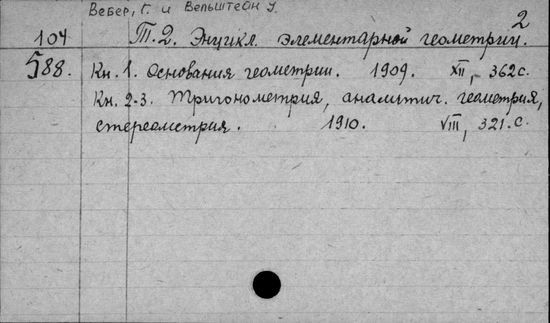 Вебер, Г. и Вельштейн У.
2
104 Т. 2. Энцикл. элементарной геометрии.
588. Кн. 1. Основания геометрии. 1909. XII, 362 с.
Кн. 2-3. Тригонометрия, аналитич. геометрия,
стереометрия. 1910. VIII, 321. с.